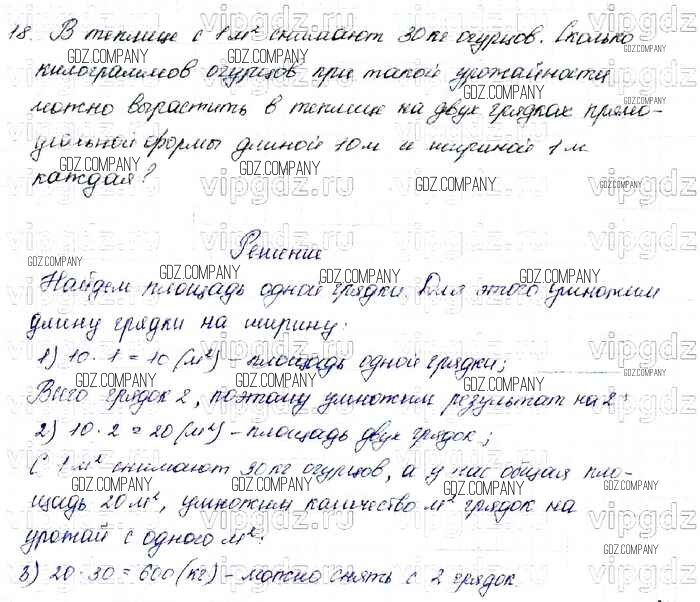 18. В теплице с 1 м² снимают 30 кг огурцов. Сколько
килограммов огурцов при такой урожайности
можно вырастить в теплице на двух грядках прямо-
угольной формы длиной 10 м и шириной 1 м
каждая?
Решение
Найдем площадь одной грядки. Для этого умножим
длину грядки на ширину:
1) 10 · 1 = 10 (м²) - площадь одной грядки;
Всего грядок 2, поэтому умножим результат на 2:
2) 10 · 2 = 20 (м²) - площадь двух грядок;
С 1 м² снимают 30 кг огурцов, а у нас общая пло-
щадь 20 м², умножим количество м² грядок на
урожай с одного м²:
3) 20 · 30 = 600 (кг) - можно снять с 2 грядок.